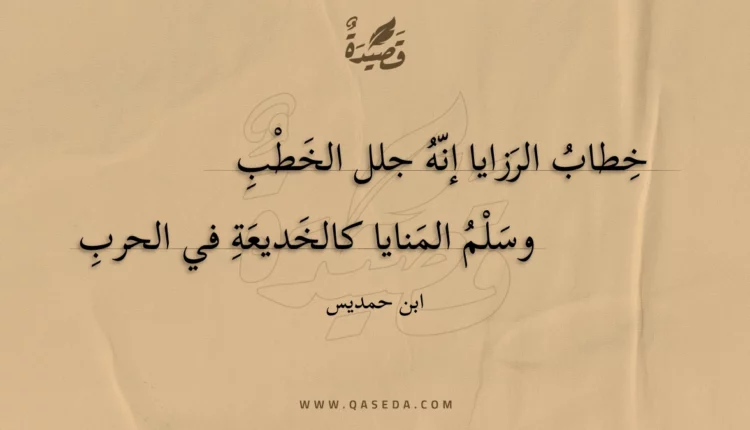 قَصِيْدَةٌ
خِطابُ الرَزايا إنّهُ جلل الخَطْبِ
وسَلْمُ المَنايا كالخَديعَةِ في الحربِ
ابن حمديس
WWW.QASEDA.COM